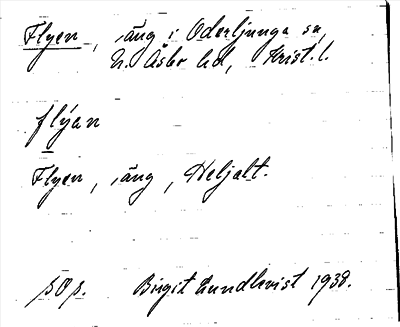 Flyen, äng i Oderljunga sn,
N. Åsbo hd, Krist. l.
flýan
Flyen, äng, Heljalt.
pop. Birgit Lundkvist 1938.